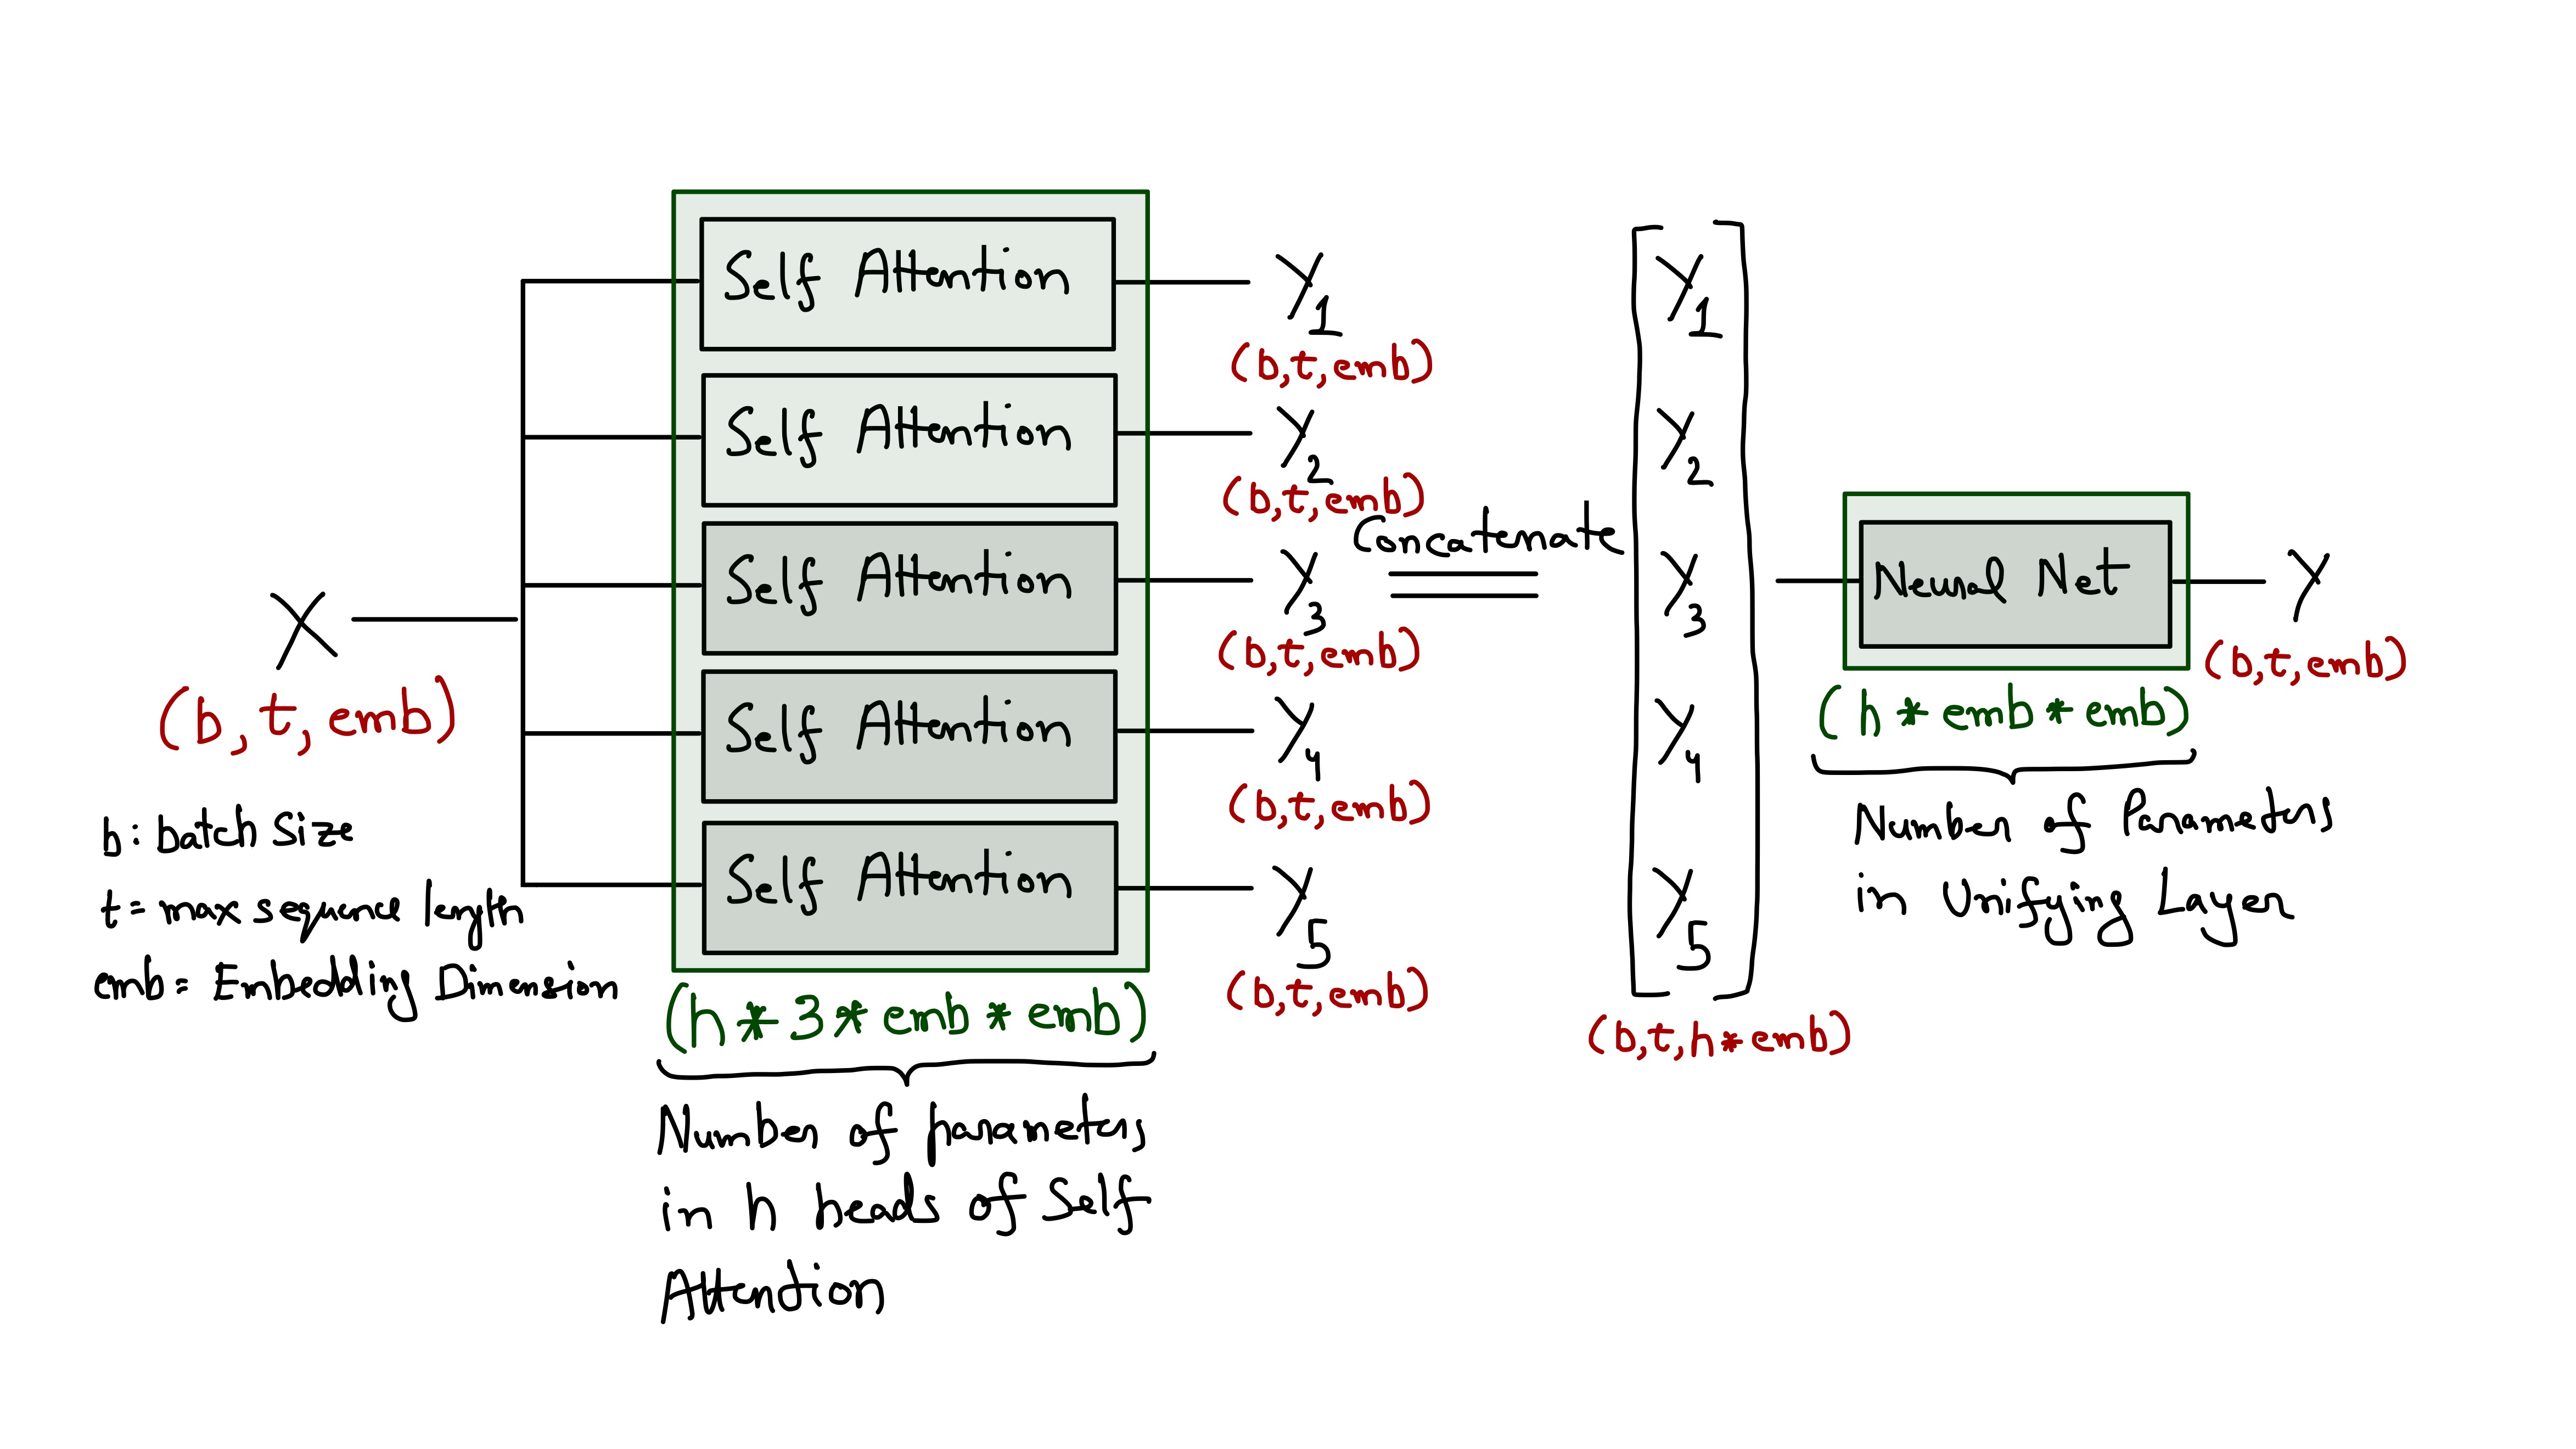 X
(b, t, emb)
b: batch size
t= max sequence length
emb= Embedding Dimension
Self Attention
Self Attention
Self Attention
Self Attention
Self Attention
(h*3*emb*emb)
Number of parameters
in h heads of Self
Attention
Y1
(b,t,emb)
Y2
(b,t,emb)
Y3
(b,t,emb)
Y4
(b,t,emb)
Y5
(b,t,emb)
Concatenate
Y1
Y2
Y3
Y4
Y5
(b,t,h*emb)
Neural Net
(h*emb*emb)
Number of Parameters
in Unifying Layer
Y
(b,t,emb)